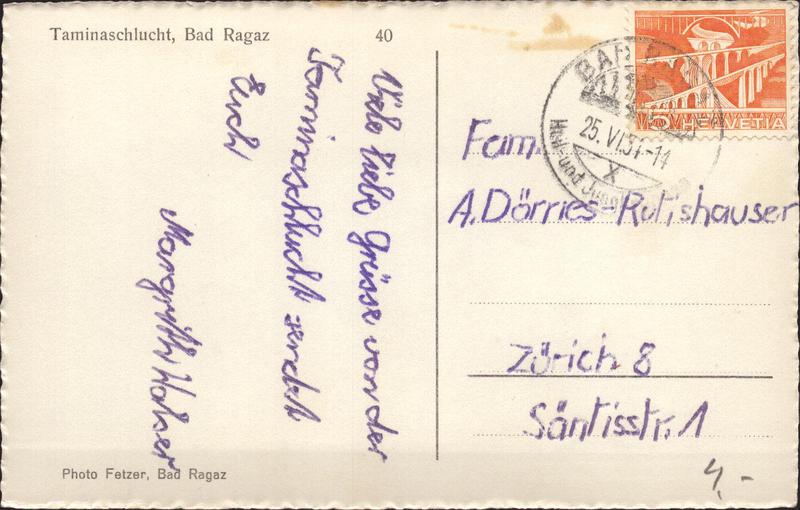 Taminaschlucht, Bad Ragaz
40
Viele liebe Grüsse von der
Taminaschlucht sendet
Euch
Margrith
Photo Fetzer, Bad Ragaz
BAD R
25. VI. 51-14
X
5 HELVETIA
Fam.
A. Dörries-Rutishauser
Zürich 8
Säntisstr. 1
4,-